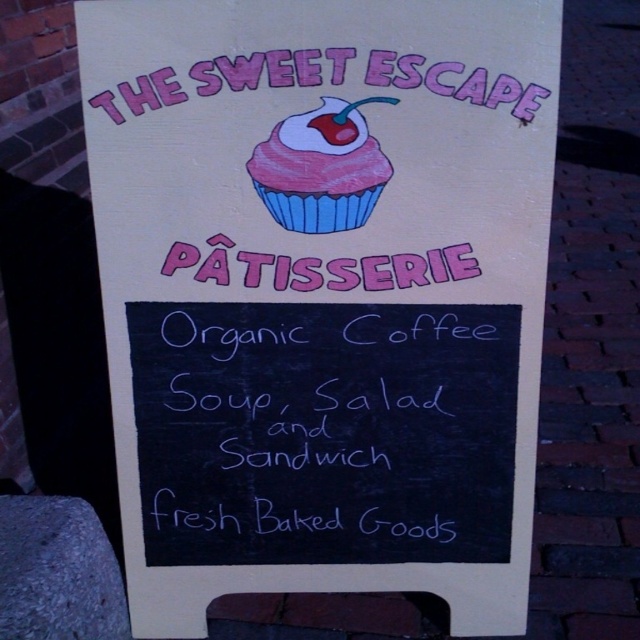 THE SWEET ESCAPE
PÂTISSERIE
Organic Coffee
Soup, Salad
and
Sandwich
fresh Baked Goods